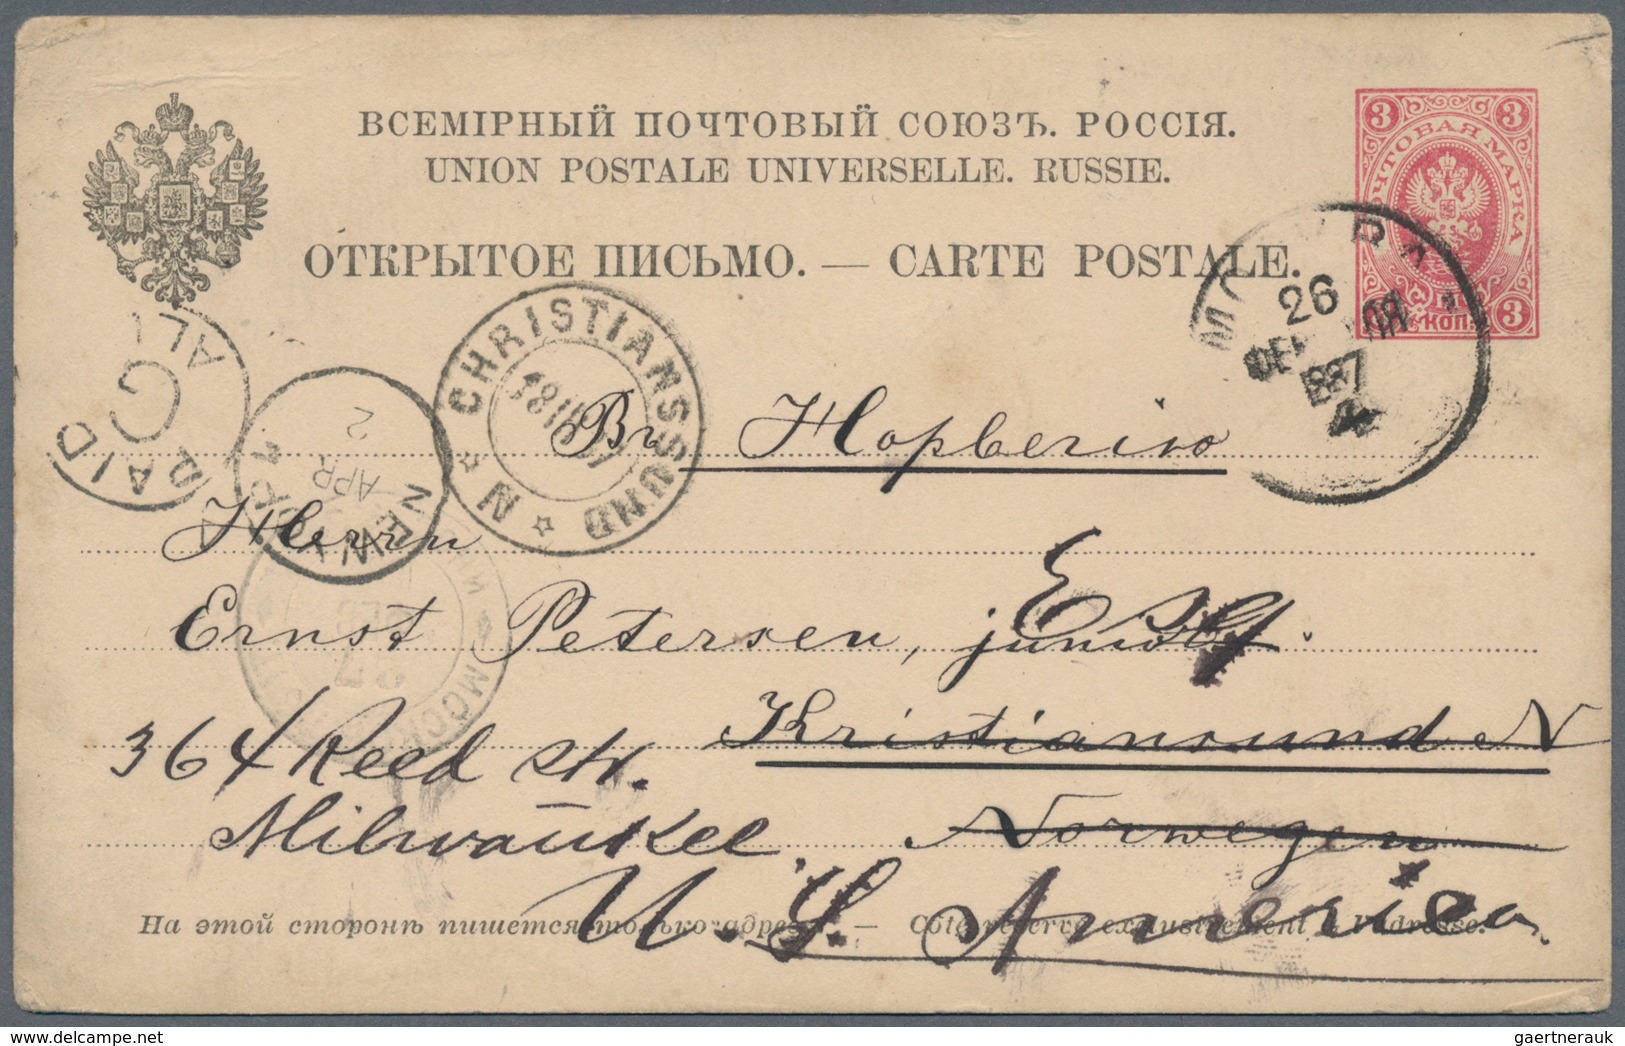 ВСЕМІРНЫЙ ПОЧТОВЫЙ СОЮЗЪ. РОССІЯ.
UNION POSTALE UNIVERSELLE. RUSSIE.
ОТКРЫТОЕ ПИСЬМО. — CARTE POSTALE.
3 3
ПОЧТОВАЯ МАРКА
3 КОП. 3
МОСКВА
26
1887
PAID
G
ALL
NEW YORK
APR
2
CHRISTIANSSUND
N
18 III 87
Herrn
Ernst Petersen, junior.
364 Reed str.
Kristiansund N
Milwaukee.
Norwegen
U. S. America
На этой сторонѣ пишется только адресъ. — Côté réservé exclusivement à l'adresse.
gaertnerauk